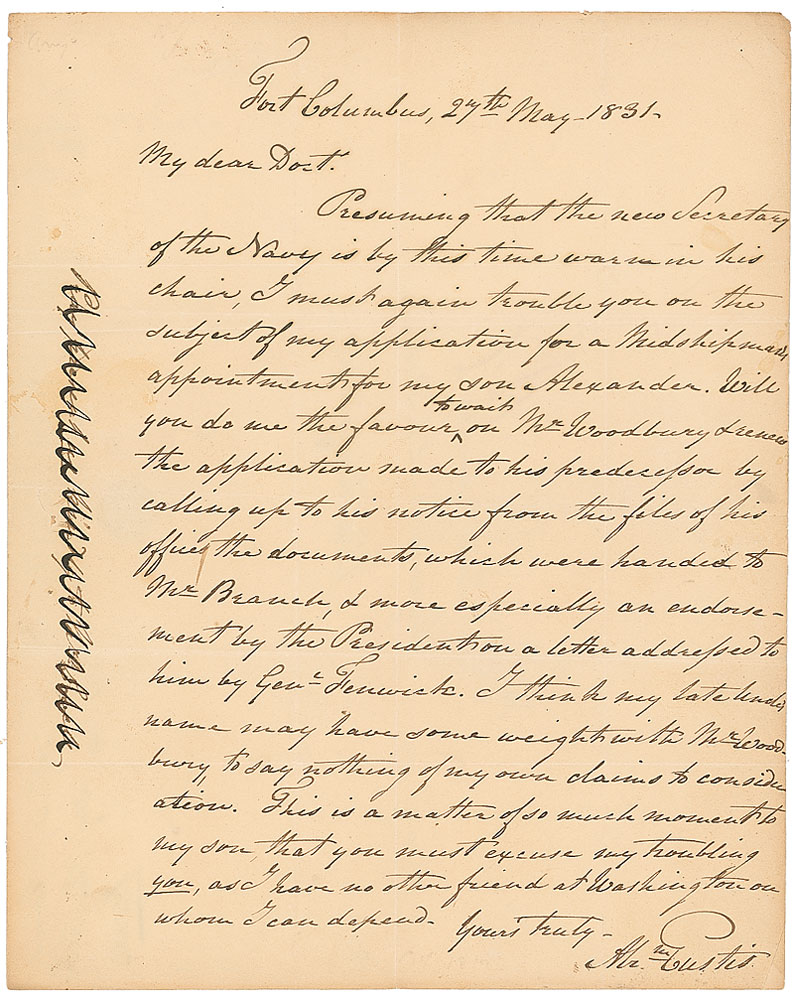 Fort Columbus, 27th May 1831.
My dear Doct.
Presuming that the new Secretary
of the Navy is by this time warm in his
chair, I must again trouble you on the
subject of my application for a Midshipman's
appointment for my son Alexander. Will
you do me the favour to wait on Mr Woodbury & renew
the application made to his predecessor by
calling up to his notice from the files of his
office, the documents, which were handed to
Mr Branch, & more especially an endorse-
ment by the President on a letter addressed to
him by Genl Fenwick. I think my late Uncle's
name may have some weight with Mr Wood-
bury, to say nothing of my own claims to consider
ation. This is a matter of so much moment to
my son, that you must excuse my troubling
you, as I have no other friend at Washington on
whom I can depend. Yours truly -
Abrm Eustis.